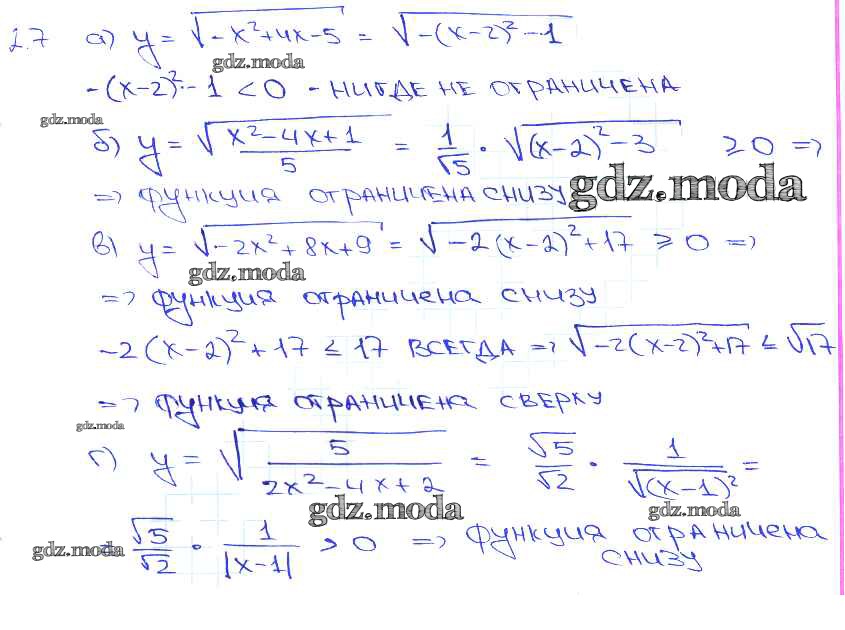 2.7 а) y = √(-x²+4x-5) = √(-(x-2)²-1)
gdz.moda
-(x-2)²-1 < 0 - НИГДЕ НЕ ОГРАНИЧЕНА
gdz.moda
б) y = √((x²-4x+1)/5) = 1/√5 · √((x-2)²-3) ≥ 0 =>
=> ФУНКЦИЯ ОГРАНИЧЕНА СНИЗУ
gdz.moda
в) y = √(-2x²+8x+9) = √(-2(x-2)²+17) ≥ 0 =>
gdz.moda
=> ФУНКЦИЯ ОГРАНИЧЕНА СНИЗУ
-2(x-2)²+17 ≤ 17 ВСЕГДА => √(-2(x-2)²+17) ≤ √17
=> ФУНКЦИЯ ОГРАНИЧЕНА СВЕРХУ
gdz.moda
г) y = √(5/(2x²-4x+2)) = √5/√2 · 1/√(x-1)² =
gdz.moda
gdz.moda
= √5/√2 · 1/|x-1| > 0 => ФУНКЦИЯ ОГРАНИЧЕНА
СНИЗУ
gdz.moda